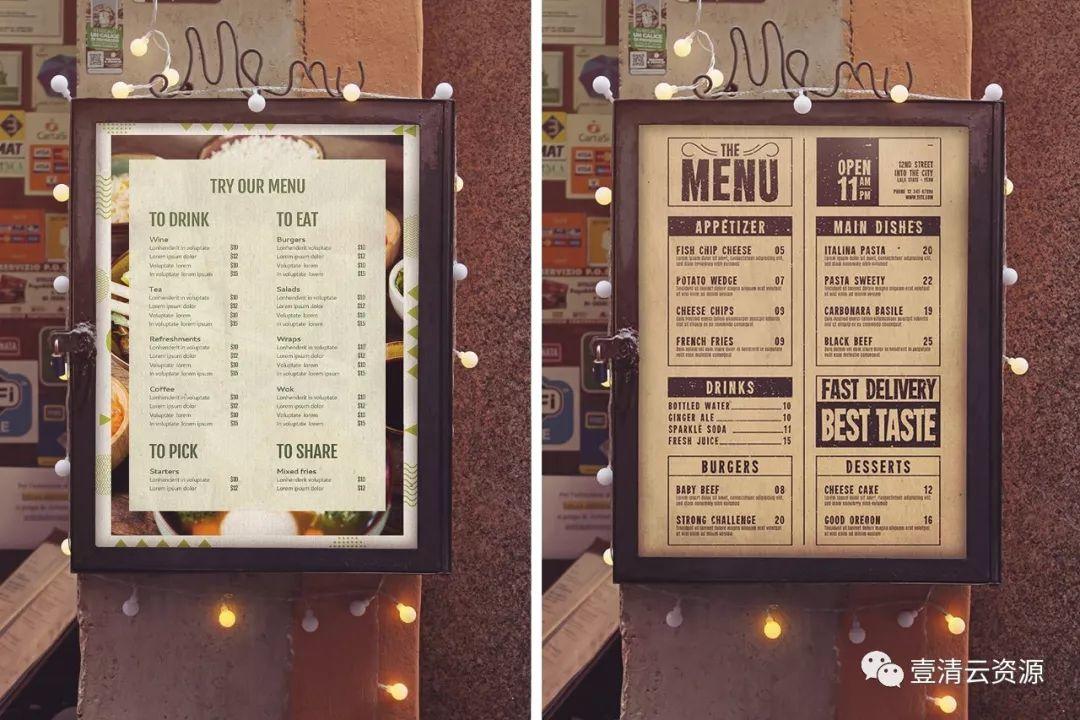 Menu
TRY OUR MENU
TO DRINK
Wine
Lonhenderit in voluptate $10
Lorem ipsum dolor $12
Voluptate lorem $10
In voluptate lorem ipsum $15
Tea
Lonhenderit in voluptate $10
Lorem ipsum dolor $12
Voluptate lorem $10
In voluptate lorem ipsum $15
Refreshments
Lonhenderit in voluptate $10
Lorem ipsum dolor $12
Voluptate lorem $10
In voluptate lorem ipsum $15
Coffee
Lonhenderit in voluptate $10
Lorem ipsum dolor $12
Voluptate lorem $10
In voluptate lorem ipsum $15
TO EAT
Burgers
Lonhenderit in voluptate $10
Lorem ipsum dolor $12
Voluptate lorem $10
In voluptate lorem ipsum $15
Salads
Lonhenderit in voluptate $10
Lorem ipsum dolor $12
Voluptate lorem $10
In voluptate lorem ipsum $15
Wraps
Lonhenderit in voluptate $10
Lorem ipsum dolor $12
Voluptate lorem $10
In voluptate lorem ipsum $15
Wok
Lonhenderit in voluptate $10
Lorem ipsum dolor $12
Voluptate lorem $10
In voluptate lorem ipsum $15
TO PICK
Starters
Lonhenderit in voluptate $10
Lorem ipsum dolor $12
TO SHARE
Mixed fries
Lonhenderit in voluptate $10
Lorem ipsum dolor $12
Menu
THE
MENU
OPEN
11 AM
PM
12ND STREET
INTO THE CITY
APPETIZER
FISH CHIP CHEESE 05
POTATO WEDGE 07
CHEESE CHIPS 03
FRENCH FRIES 09
DRINKS
BOTTLED WATER 10
GINGER ALE 10
SPARKLE SODA 11
FRESH JUICE 15
BURGERS
BABY BEEF 08
STRONG CHALLENGE 20
MAIN DISHES
ITALINA PASTA 20
PASTA SWEETY 22
CARBONARA BASILE 19
BLACK BEEF 25
FAST DELIVERY
BEST TASTE
DESSERTS
CHEESE CAKE 12
GOOD OREOON 16
壹清云资源